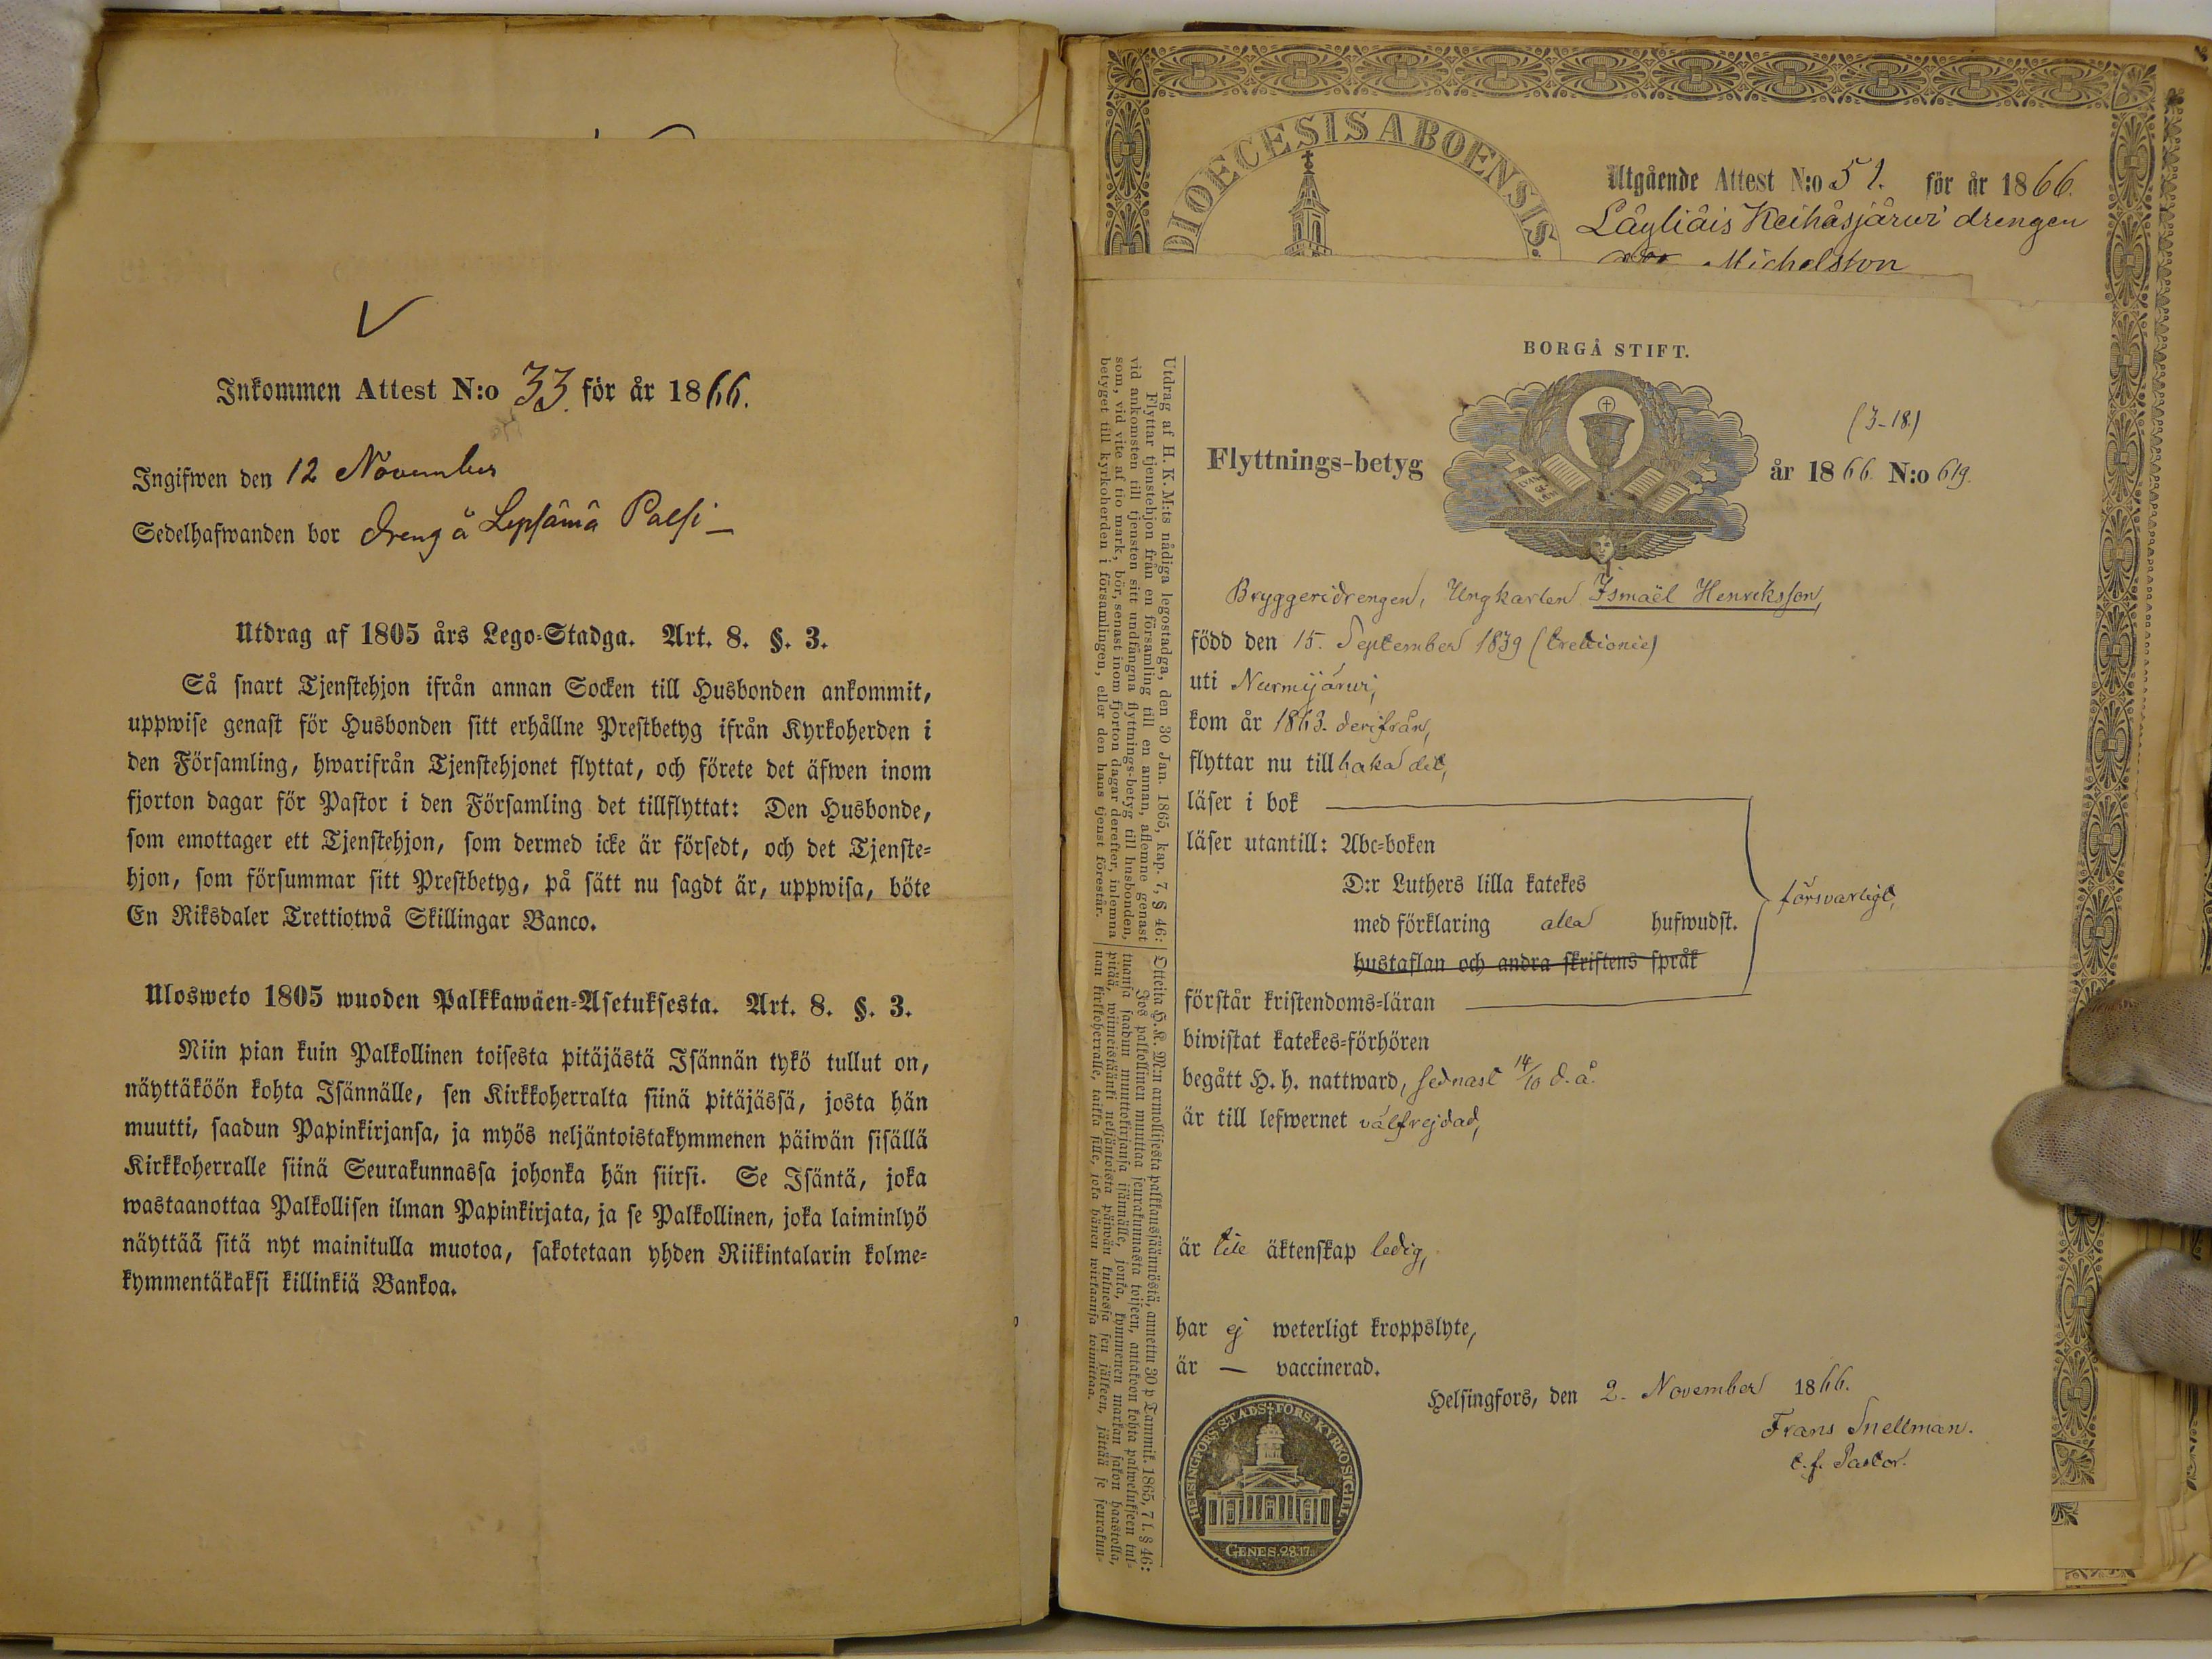 Inkommen Attest N:o 33. för år 1866.
Ingifwen den 12 November
Sedelhafwanden bor dreng å Lepsämä Palsi –
Utdrag af 1805 års Lego-Stadga. Art. 8. §. 3.
Så snart Tjenstehjon ifrån annan Socken till Husbonden ankommit,
uppwise genast för Husbonden sitt erhållne Prestbetyg ifrån Kyrkoherden i
den Församling, hwarifrån Tjenstehjonet flyttat, och förete det äfwen inom
fjorton dagar för Pastor i den Församling det tillflyttat: Den Husbonde,
som emottager ett Tjenstehjon, som dermed icke är försedt, och det Tjenste-
hjon, som försummar sitt Prestbetyg, på sätt nu sagdt är, uppwisa, böte
En Riksdaler Trettiotwå Skillingar Banco.
Ulosweto 1805 wuoden Palkkawäen-Asetuksesta. Art. 8. §. 3.
Niin pian kuin Palkollinen toisesta pitäjästä Isännän tykö tullut on,
näyttäköön kohta Isännälle, sen Kirkkoherralta siinä pitäjässä, josta hän
muutti, saadun Papinkirjansa, ja myös neljäntoistakymmenen päiwän sisällä
Kirkkoherralle siinä Seurakunnassa johonka hän siirsi. Se Isäntä, joka
wastaanottaa Palkollisen ilman Papinkirjata, ja se Palkollinen, joka laiminlyö
näyttää sitä nyt mainitulla muotoa, sakotetaan yhden Riikintalarin kolme-
kymmentäkaksi killinkiä Bankoa.
DIOECESIS ABOENSIS.
Utgående Attest N:o 51. för år 1866.
Läyliäis Keihäsjärwi drengen
Michelsson
BORGÅ STIFT.
(3-18)
Flyttnings-betyg år 1866 N:o 619.
Bryggeridrengen, Ungkarlen Ismaël Henriksson,
född den 15. September 1839 (trettionie)
uti Nurmijärwi,
kom år 1863. derifrån,
flyttar nu tillbaka dit,
läser i bok
läser utantill: Abc-boken
D:r Luthers lilla katekes
med förklaring alla hufwudst.
försvarligt,
hustaflan och andra skriftens språk
förstår kristendoms-läran
biwistat katekes-förhören
begått H. h. nattward, sednast 14/10 d. å.
är till lefwernet välfrejdad,
är till äktenskap ledig,
har ej weterligt kroppslyte,
är — vaccinerad.
Helsingfors, den 2. November 1866.
Frans Snellman.
t. f. Pastor.
HELSINGFORS STADS FÖRS KYRKO SIGILL.
GENES. 28.17.
Utdrag af H. K. M:ts nådiga legostadga, den 30 Jan. 1865, kap. 7, § 46:
Flyttar tjenstehjon från en församling till en annan, aflemne genast
vid ankomsten till tjensten sitt undfångna flyttnings-betyg till husbonden,
som, vid vite af tio mark, bör, senast inom fjorton dagar derefter, inlemna
betyget till kyrkoherden i församlingen, eller den hans tjenst förestår.
Otteita H. K. M:n armollisesta palkkaussäännöstä, annettu 30 p Tammik. 1865, 7 l. § 46:
Jos palkollinen muuttaa seurakunnasta toiseen, antakoon kohta palwelukseen tul-
tuansa saadun muuttokirjansa isännälle, jonka, kymmenen markan sakon haastolla,
pitää, wiimeistäänki neljäntoista päiwän kuluessa sen jälkeen, jättää se seurakun-
nan kirkkoherralle, taikka sille, joka hänen wirkaansa toimittaa.